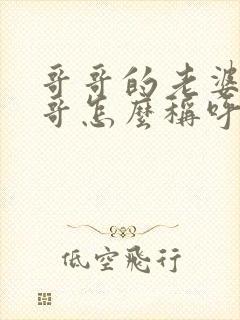 哥哥的老婆
哥怎麼稱呼
低空飛行